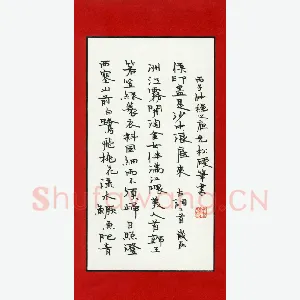 西塞山前白鷺飛桃花流水鳜魚肥青
箬笠綠蓑衣斜風細雨不須歸 日照澄
洲江霧開淘金女伴滿江隈美人首飾王
侯印盡是沙中浪底來 古詞首 歲在
丙子
書
Shufawang.CN